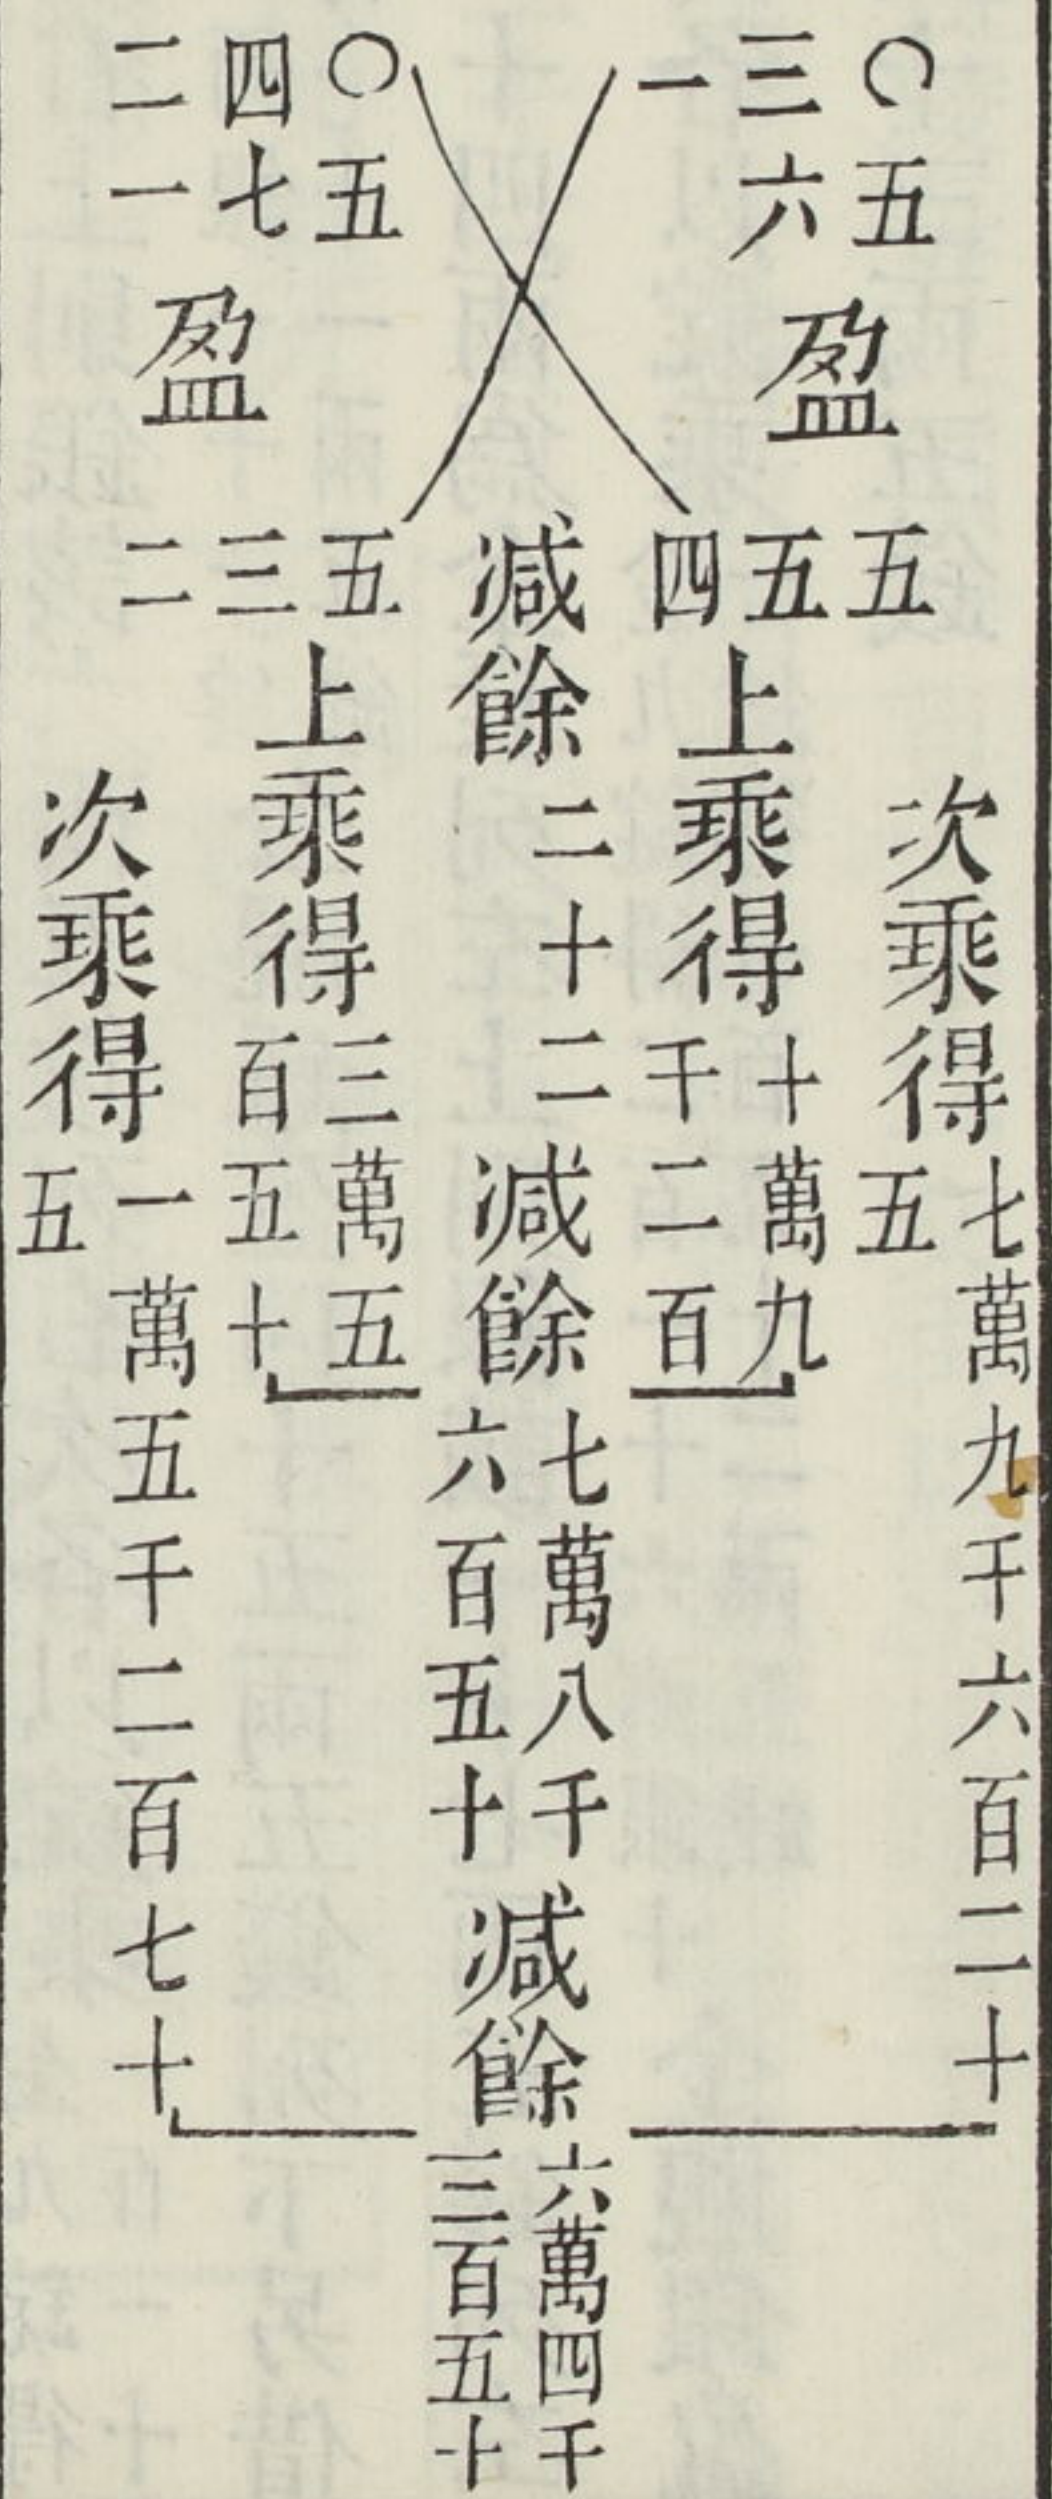 一三〇
六五
盈
四五五
次乘得
七萬九千六百二十
五
上乘得
十萬九
千二百
減餘
二十二
減餘
七萬八千
六百五十
減餘
六萬四千
三百五十
二四〇
一七五
盈
二三五
上乘得
三萬五
百五十
次乘得
一萬五千二百七十
五